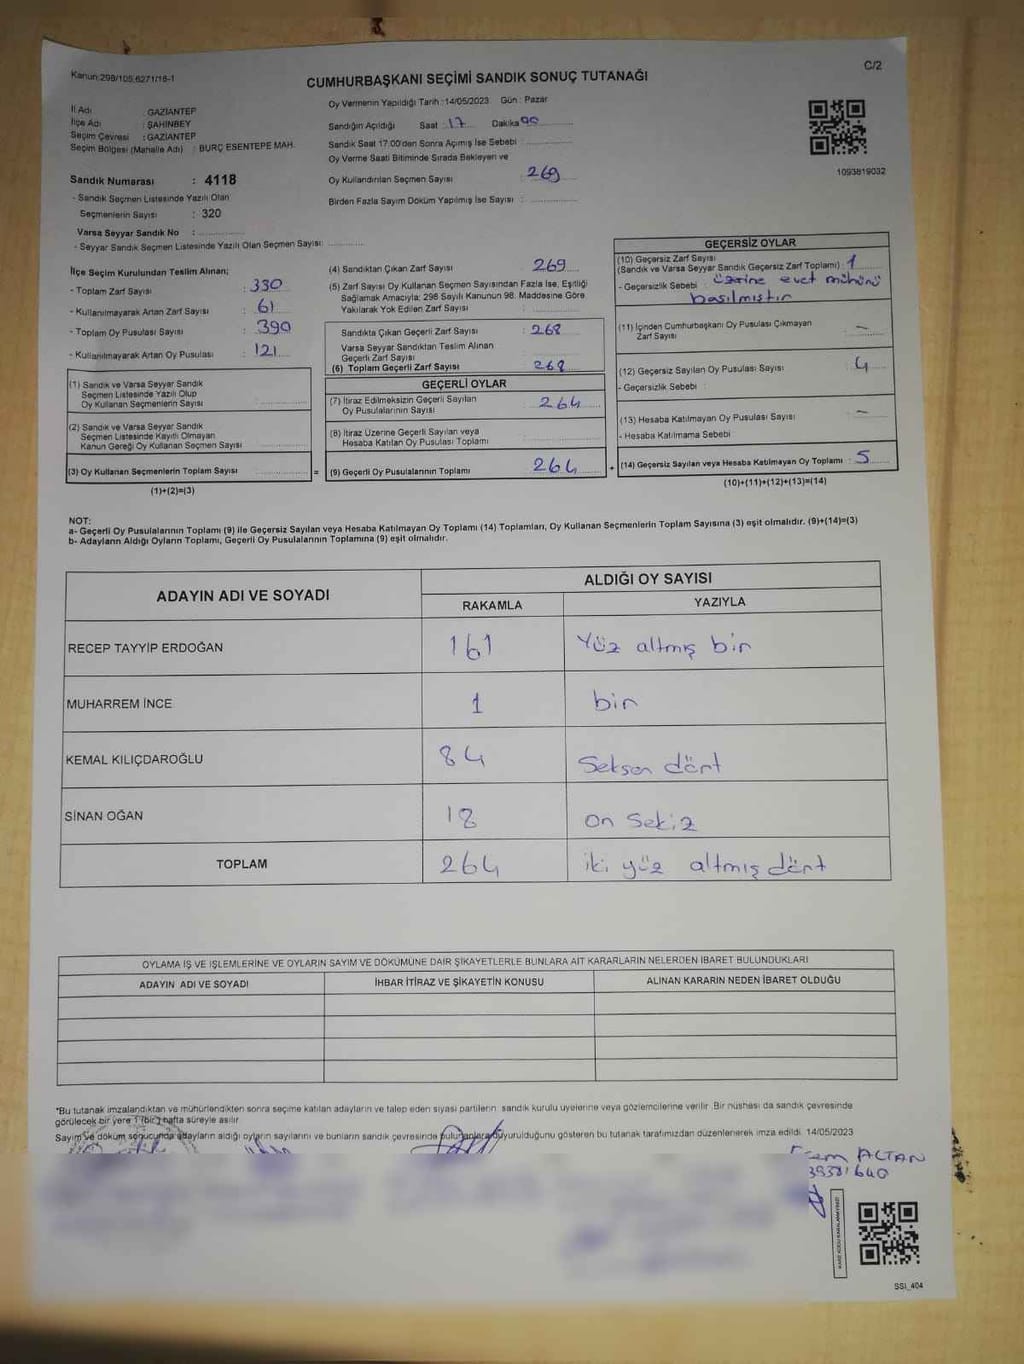 Kanun:298/105,6271/18-1
C/2
CUMHURBAŞKANI SEÇİMİ SANDIK SONUÇ TUTANAĞI
İl Adı : GAZİANTEP
İlçe Adı : ŞAHİNBEY
Seçim Çevresi : GAZİANTEP
Seçim Bölgesi (Mahalle Adı) : BURÇ ESENTEPE MAH.
Oy Vermenin Yapıldığı Tarih : 14/05/2023 Gün : Pazar
Sandığın Açıldığı Saat : 17 Dakika
Sandık Saat 17:00'den Sonra Açılmış İse Sebebi :
Oy Verme Saati Bitiminde Sırada Bekleyen ve
Oy Kullandırılan Seçmen Sayısı : 269
Birden Fazla Sayım Döküm Yapılmış İse Sayısı :
1093819032
Sandık Numarası : 4118
- Sandık Seçmen Listesinde Yazılı Olan
Seçmenlerin Sayısı : 320
Varsa Seyyar Sandık No :
- Seyyar Sandık Seçmen Listesinde Yazılı Olan Seçmen Sayısı:
İlçe Seçim Kurulundan Teslim Alınan;
- Toplam Zarf Sayısı : 330
- Kullanılmayarak Artan Zarf Sayısı : 61
- Toplam Oy Pusulası Sayısı : 390
- Kullanılmayarak Artan Oy Pusulası : 121
(1) Sandık ve Varsa Seyyar Sandık
Seçmen Listesinde Yazılı Olup
Oy Kullanan Seçmenlerin Sayısı :
(2) Sandık ve Varsa Seyyar Sandık
Seçmen Listesinde Kayıtlı Olmayan
Kanun Gereği Oy Kullanan Seçmen Sayısı
(3) Oy Kullanan Seçmenlerin Toplam Sayısı
(1)+(2)=(3)
=
(4) Sandıktan Çıkan Zarf Sayısı : 269
(5) Zarf Sayısı Oy Kullanan Seçmen Sayısından Fazla İse, Eşitliği
Sağlamak Amacıyla; 298 Sayılı Kanunun 98. Maddesine Göre
Yakılarak Yok Edilen Zarf Sayısı :
Sandıkta Çıkan Geçerli Zarf Sayısı : 268
Varsa Seyyar Sandıktan Teslim Alınan
Geçerli Zarf Sayısı :
(6) Toplam Geçerli Zarf Sayısı : 268
GEÇERLİ OYLAR
(7) İtiraz Edilmeksizin Geçerli Sayılan
Oy Pusulalarının Sayısı : 264
(8) İtiraz Üzerine Geçerli Sayılan veya
Hesaba Katılan Oy Pusulası Toplamı
(9) Geçerli Oy Pusulalarının Toplamı 264
+
GEÇERSİZ OYLAR
(10) Geçersiz Zarf Sayısı
(Sandık ve Varsa Seyyar Sandık Geçersiz Zarf Toplamı) : 1
- Geçersizlik Sebebi : üzerine evet mühürü
basılmıştır
(11) İçinden Cumhurbaşkanı Oy Pusulası Çıkmayan
Zarf Sayısı : –
(12) Geçersiz Sayılan Oy Pusulası Sayısı : 4
- Geçersizlik Sebebi :
(13) Hesaba Katılmayan Oy Pusulası Sayısı : –
- Hesaba Katılmama Sebebi
(14) Geçersiz Sayılan veya Hesaba Katılmayan Oy Toplamı : 5
(10)+(11)+(12)+(13)=(14)
NOT:
a- Geçerli Oy Pusulalarının Toplamı (9) ile Geçersiz Sayılan veya Hesaba Katılmayan Oy Toplamı (14) Toplamları, Oy Kullanan Seçmenlerin Toplam Sayısına (3) eşit olmalıdır. (9)+(14)=(3)
b- Adayların Aldığı Oyların Toplamı, Geçerli Oy Pusulalarının Toplamına (9) eşit olmalıdır.
ADAYIN ADI VE SOYADI
ALDIĞI OY SAYISI
RAKAMLA YAZIYLA
RECEP TAYYİP ERDOĞAN 161 Yüz altmış bir
MUHARREM İNCE 1 bir
KEMAL KILIÇDAROĞLU 84 Seksen dört
SİNAN OĞAN 18 on sekiz
TOPLAM 264 iki yüz altmış dört
OYLAMA İŞ VE İŞLEMLERİNE VE OYLARIN SAYIM VE DÖKÜMÜNE DAİR ŞİKAYETLERLE BUNLARA AİT KARARLARIN NELERDEN İBARET BULUNDUKLARI
ADAYIN ADI VE SOYADI İHBAR İTİRAZ VE ŞİKAYETİN KONUSU ALINAN KARARIN NEDEN İBARET OLDUĞU
*Bu tutanak imzalandıktan ve mühürlendikten sonra seçime katılan adayların ve talep eden siyasi partilerin sandık kurulu üyelerine veya gözlemcilerine verilir. Bir nüshası da sandık çevresinde
görülecek bir yere 1 (bir) hafta süreyle asılır
Sayım ve döküm sonucunda adayların aldığı oyların sayılarını ve bunların sandık çevresinde bulunanlara duyurulduğunu gösteren bu tutanak tarafımızdan düzenlenerek imza edildi. 14/05/2023
ALTAN
SSİ_404